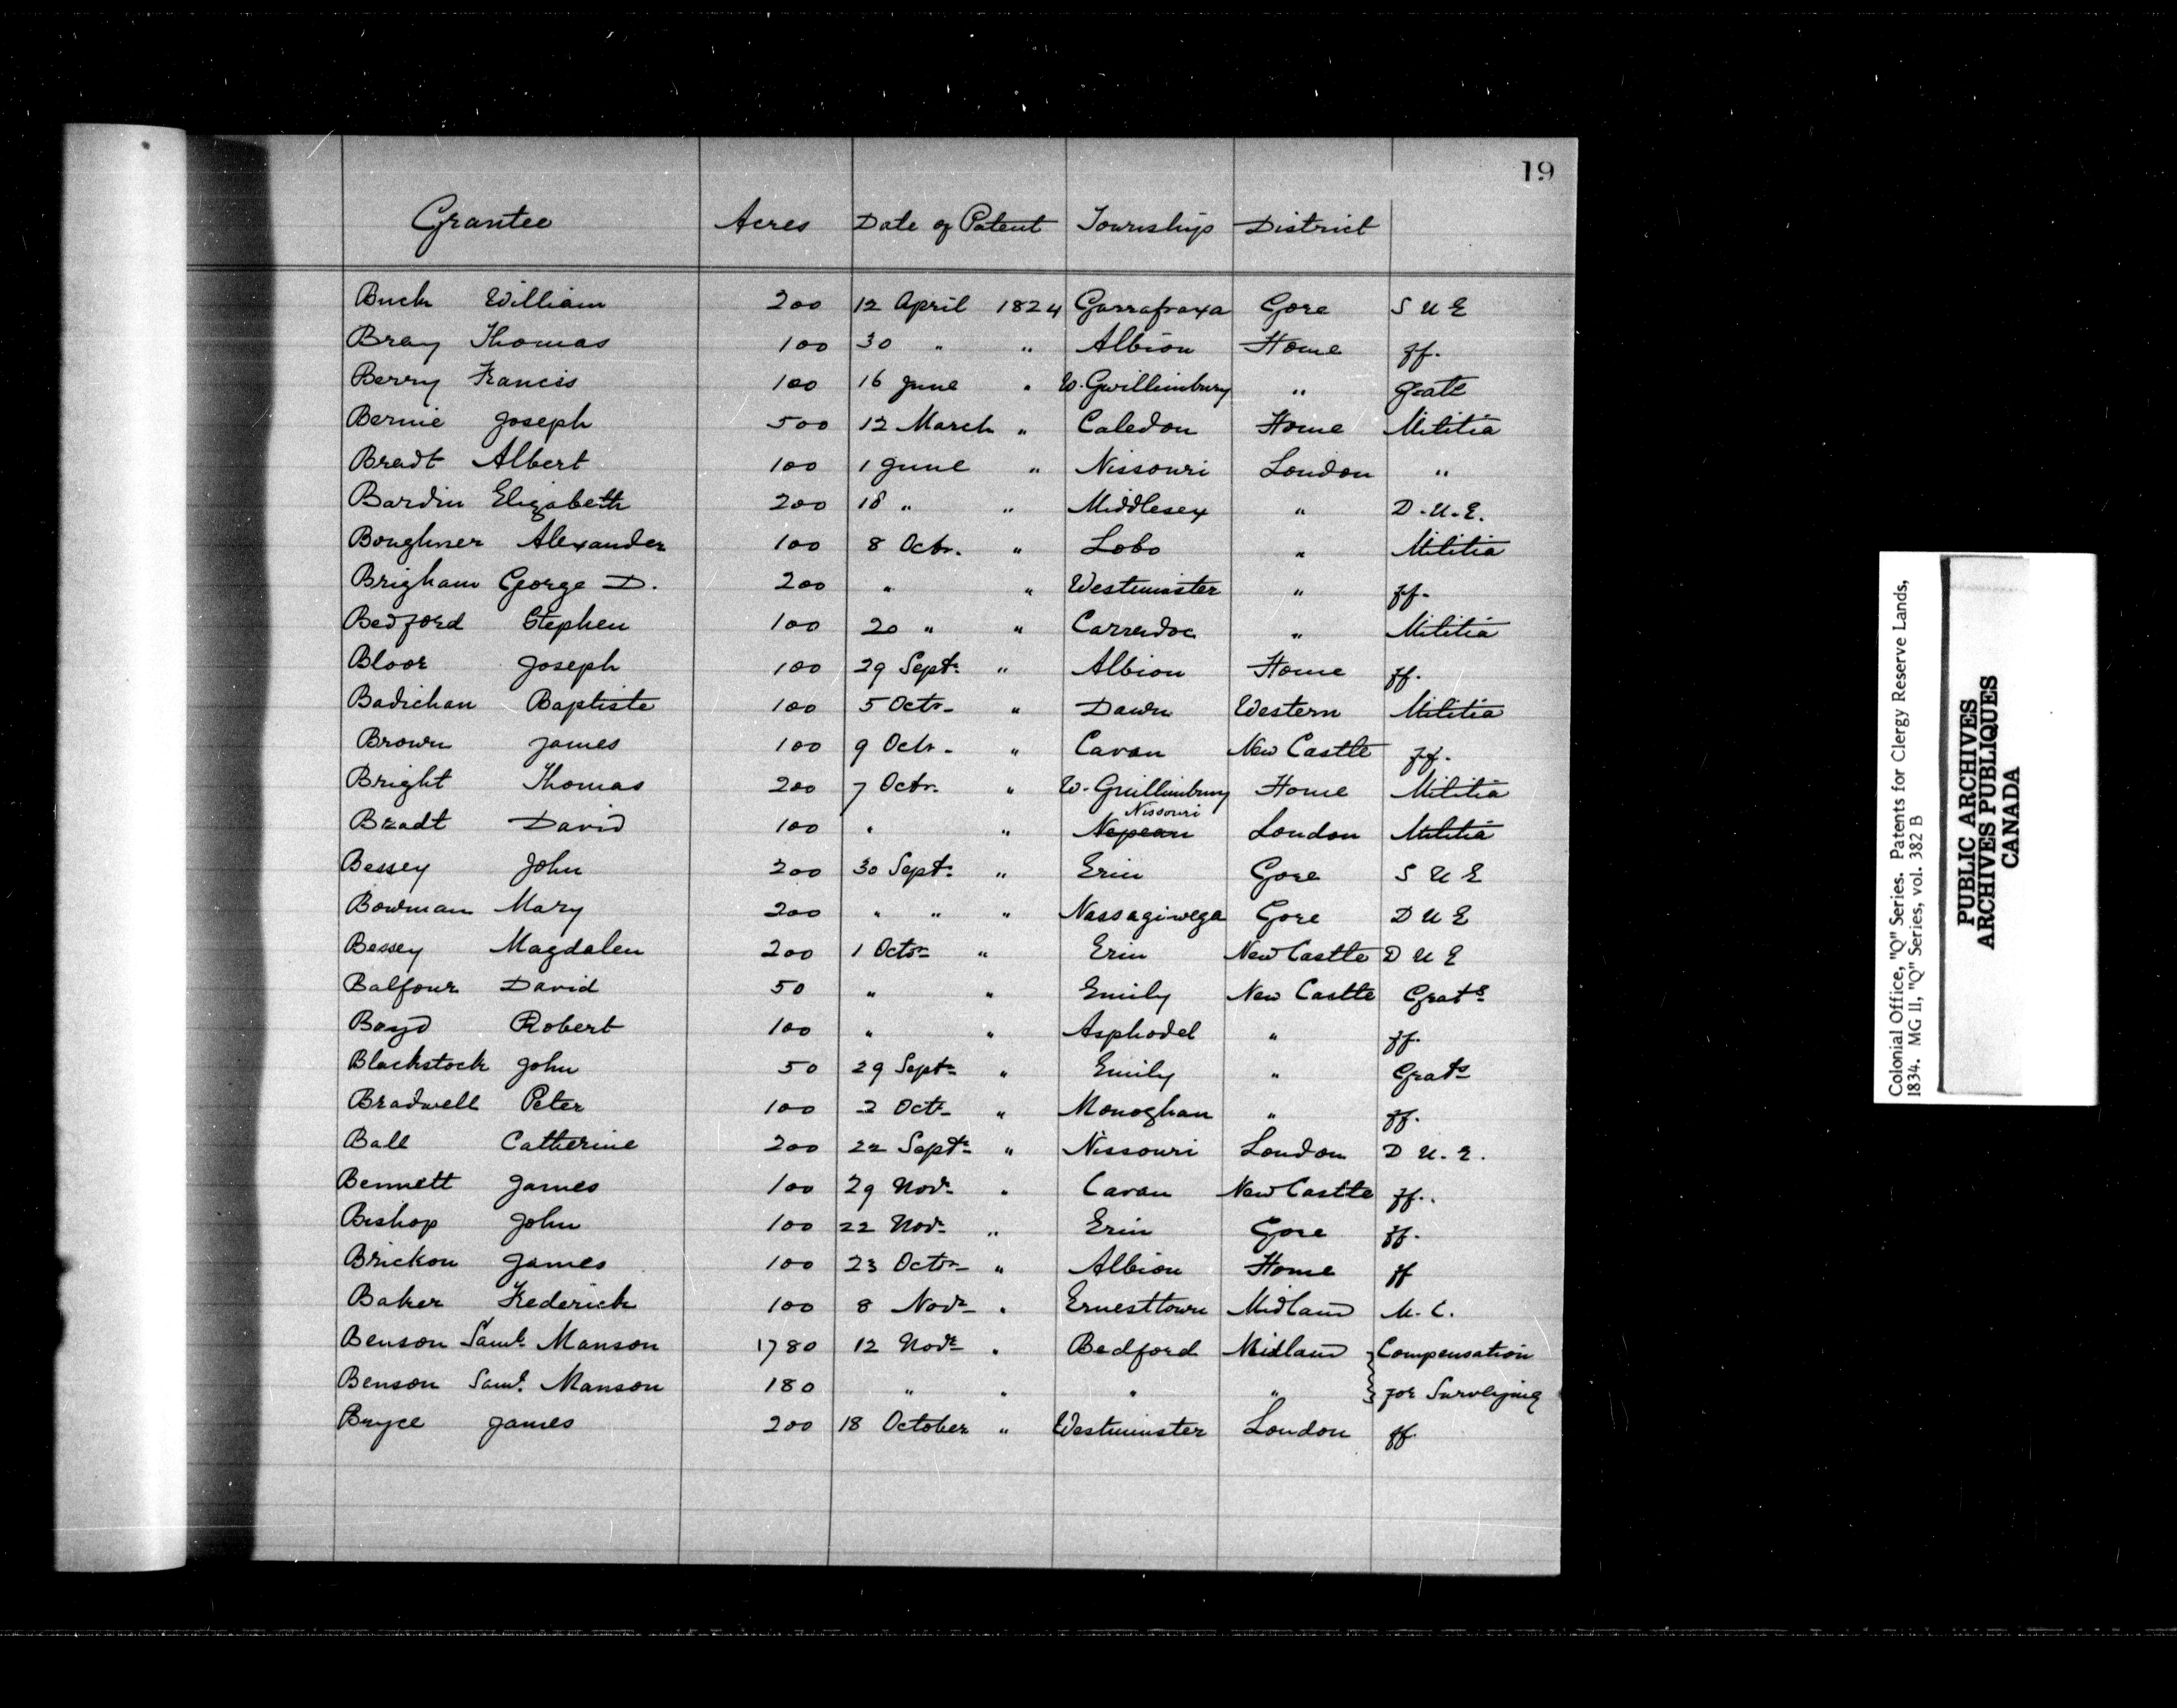 19
Grantee Acres Date of Patent Township District
Buck William 200 12 April 1824 Garrafraxa Gore S U E
Bray Thomas 100 30 " " Albion Home ff.
Berry Francis 100 16 June " W. Gwillimbury " Grats
Bernie Joseph 500 12 March " Caledon Home Militia
Bradt Albert 100 1 June " Nissouri London "
Bardin Elizabeth 200 18 " " Middlesex " D.U.E.
Boughner Alexander 100 8 Octr. " Lobo " Militia
Brigham George D. 200 " " Westminster " ff.
Bedford Stephen 100 20 " " Carradoc " Militia
Bloor Joseph 100 29 Septr. " Albion Home ff.
Badichan Baptiste 100 5 Octr. " Dawn Western Militia
Brown James 100 9 Octr. " Cavan New Castle ff.
Bright Thomas 200 7 Octr. " W. Guillimbury Home Militia
Nissouri
Bradt David 100 " " Nepean London Militia
Bessey John 200 30 Septr. " Erin Gore S U E
Bowman Mary 200 " " " Nassagiwega Gore D U E
Bessey Magdalen 200 1 Octr. " Erin New Castle D U E
Balfour David 50 " " Emily New Castle Grats
Boyd Robert 100 " " Asphodel " ff.
Blackstock John 50 29 Septr. " Emily " Grats
Bradwell Peter 100 2 Octr. " Monoghan " ff.
Ball Catherine 200 22 Septr. " Nissouri London D U.E.
Bennett James 100 29 Novr. " Cavan New Castle ff.
Bishop John 100 22 Novr. " Erin Gore ff.
Brickon James 100 23 Octr. " Albion Home ff
Baker Frederick 100 8 Novr. " Ernesttown Midland M.C.
Benson Saml. Manson 1780 12 Novr. " Bedford Midland Compensation
Benson Saml. Manson 180 " " " " for Surveying
Bryce James 200 18 October " Westminster London ff
Colonial Office, "Q" Series. Patents for Clergy Reserve Lands,
1834. MG 11, "Q" Series, vol. 382 B
PUBLIC ARCHIVES
ARCHIVES PUBLIQUES
CANADA